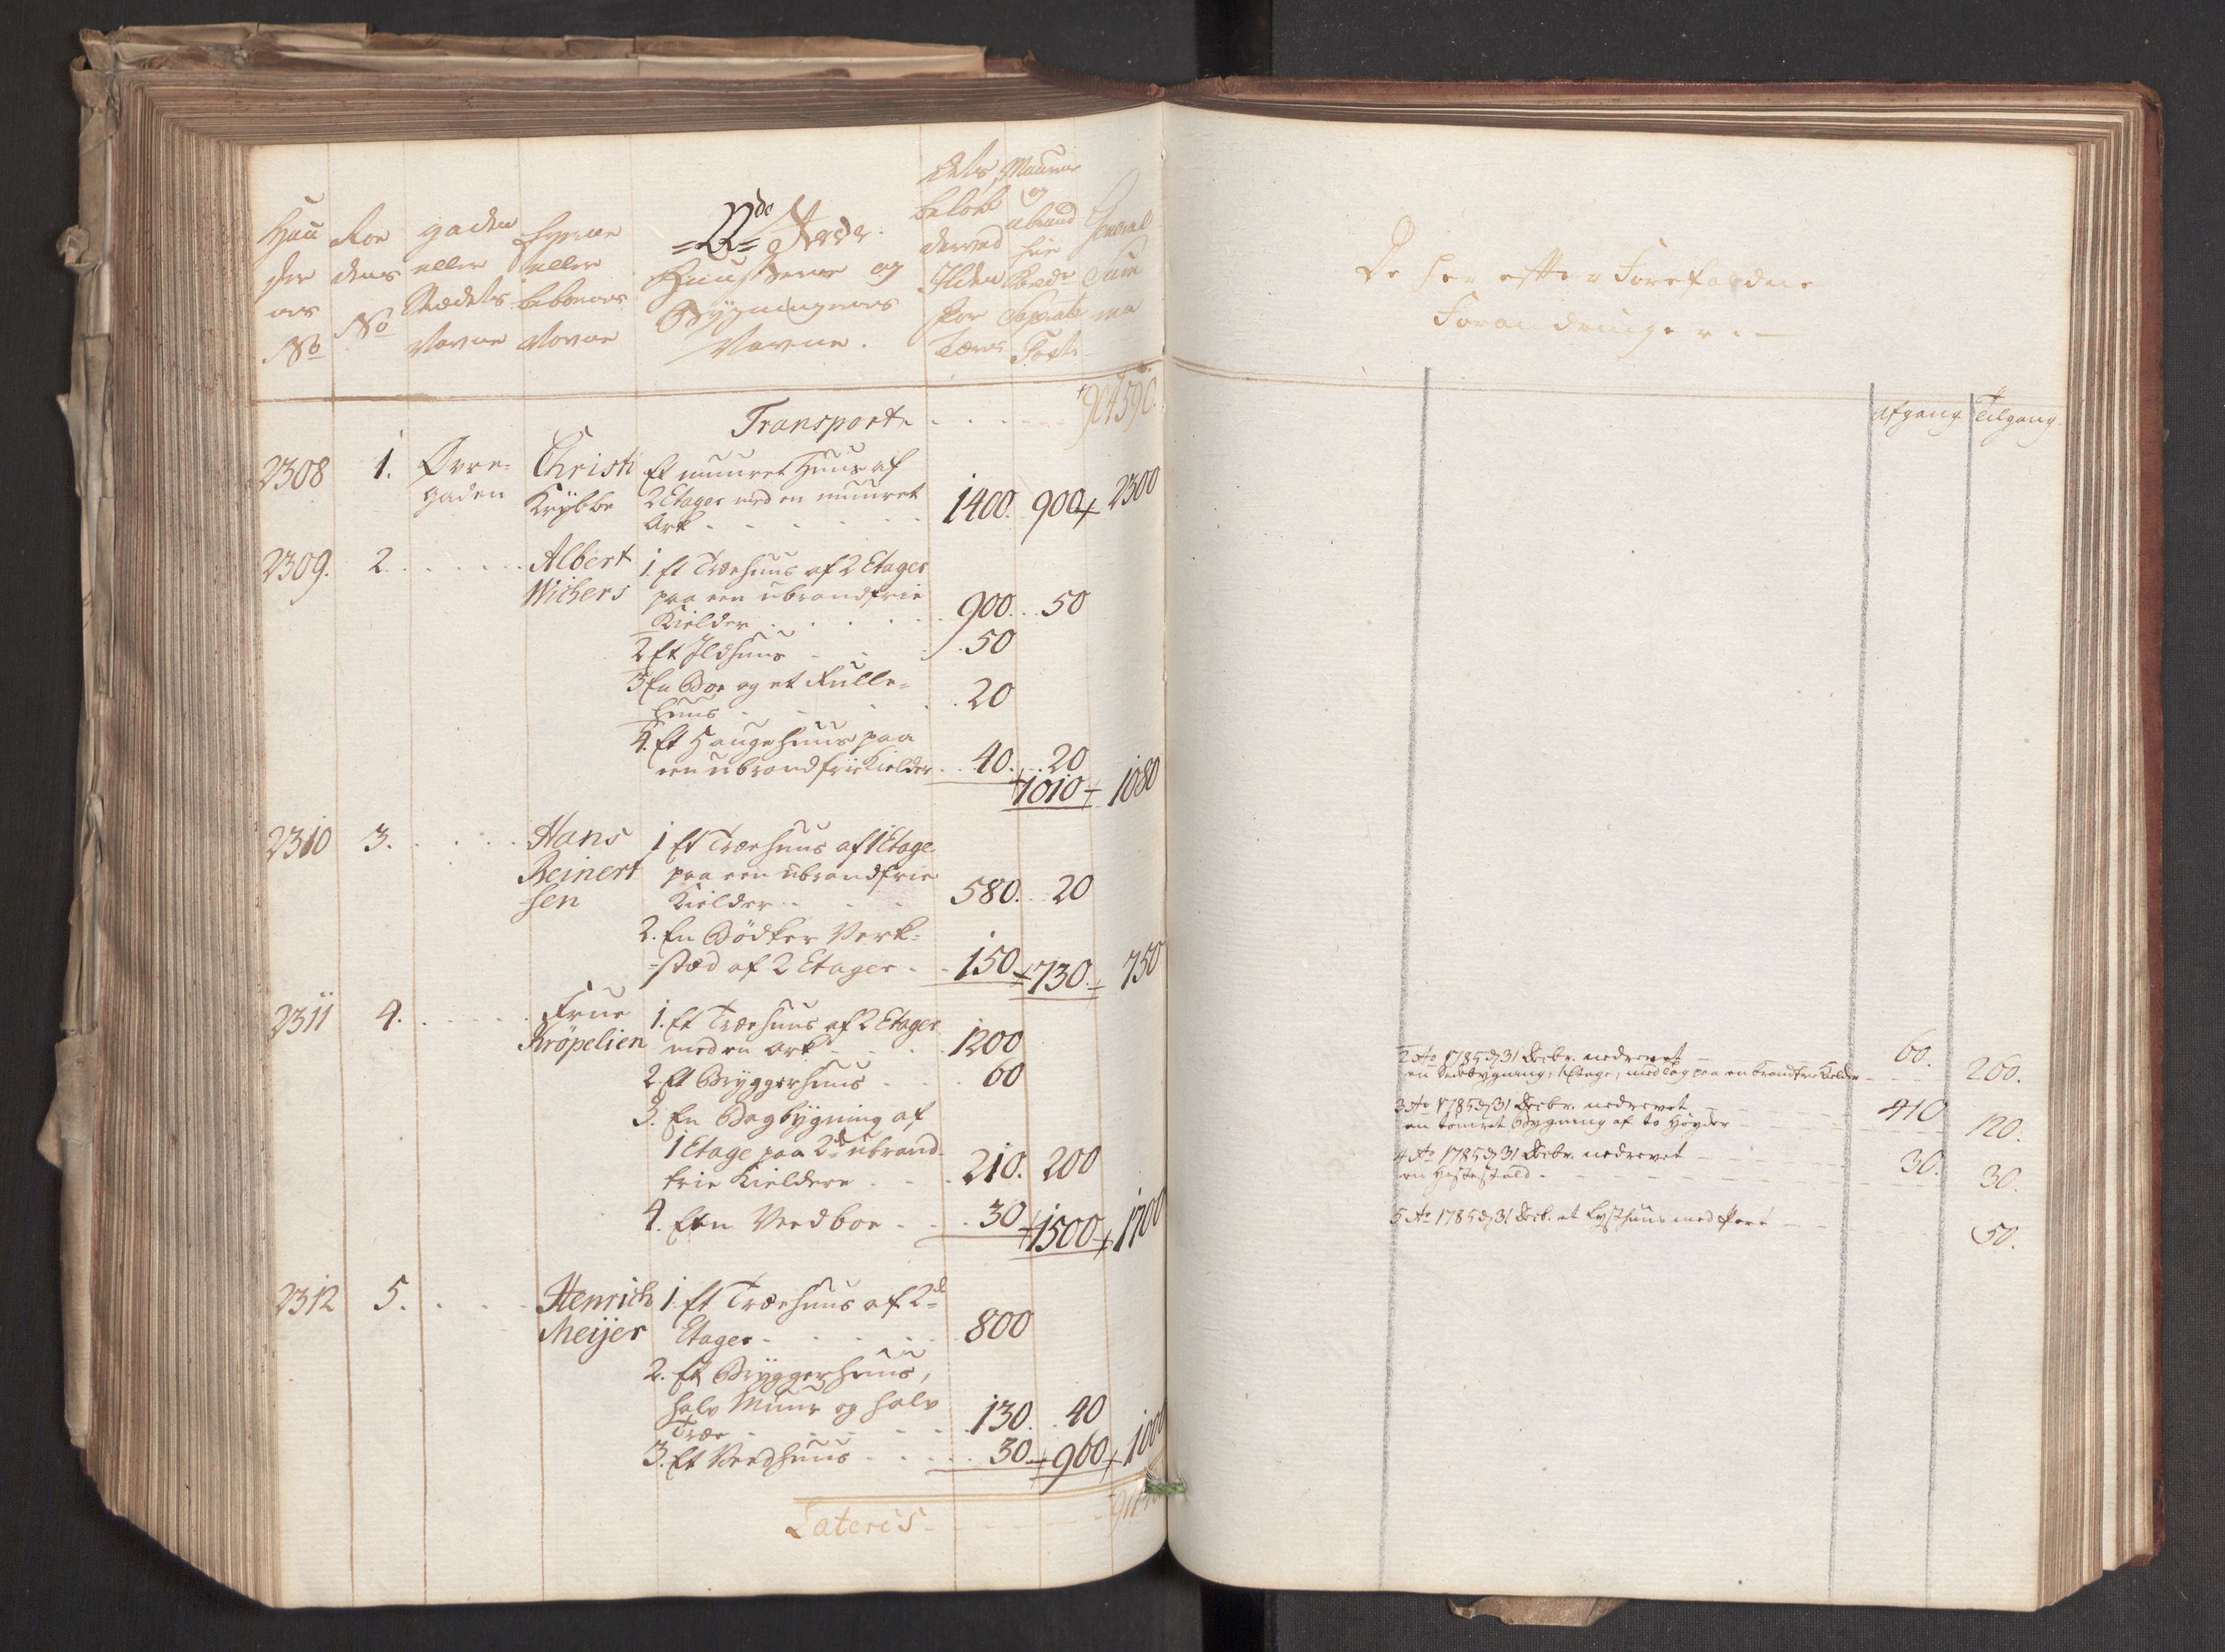 22de Rode.
Huuseernes og
Bygningernes
Navne.
Husenes No
Rodens No
gadens eller Stædets Navne
Eyerne eller beboernes Navne
Dets beløb derved Ilden kan Tæres
Muurene og ubrand frie
General Summa
Transport . . . . 904590.
2308 1. Øvre-gaden Christi Krÿbbe Et muuret Huus af
2 Etager med en muuret
Ark . . . . . . 1400. 900 2300
2309. 2. . . . . . Albert Wichers 1. Et Træhuus af 2 Etager
paa een ubrandfrie
Kielder . . . . . 900. . 50
2 Et Ildhuus . . . 50
3 En Boe og et Rulle-
huus . . . . 20
4. Et Haugehuus paa
een ubrandfrie Kielder . . 40. . 20
1010 1080
2310 3. . . . . Hans Reinertsen 1 Et Træhuus af 1 Etage
paa een ubrandfrie
Kielder . . . 580. . 20
2. En Bödker Værk-
-stæd af 2 Etager . . 150 730. 750
2311 4. . . . . Frue Kröpelien 1. Et Træhuus af 2 Etager
med en Ark . . . 1200
2. Et Bryggerhuus . . . 60
3. En Bagbygning af
1 Etage paa 2de ubrand-
frie Kieldere . . . 210. 200
4. En Vedboe . . . 30 1500 1700
2312 5. . . . Henrich Meijer 1. Et Træhuus af 2de
Etager . . . . . 800
2. Et Bryggerhuus,
halv Muur og halv
Træ . . . . . 130. . 40
3. Et Vedhuus . . . . 30 960 1000
Lateris . . . . .
De her efter Forefaldne
Forandringer. —
Afgang. Tilgang.
2 Ao 1785 d 31 Decbr. nedrevet — 60.
en Sidebygning, 1 Etage, med lag paa en brandfrie Kielder — — 260.
3 Ao 1785 d 31 Decbr. nedrevet — — 410
en tømret Bygning af to Høyder — — 120.
4 Ao 1785 d 31 Decbr. nedrevet — — 30.
en Hestestald — — 30.
5 Ao 1785 d 31 Decb. et Lysthuus med Port — — 50.